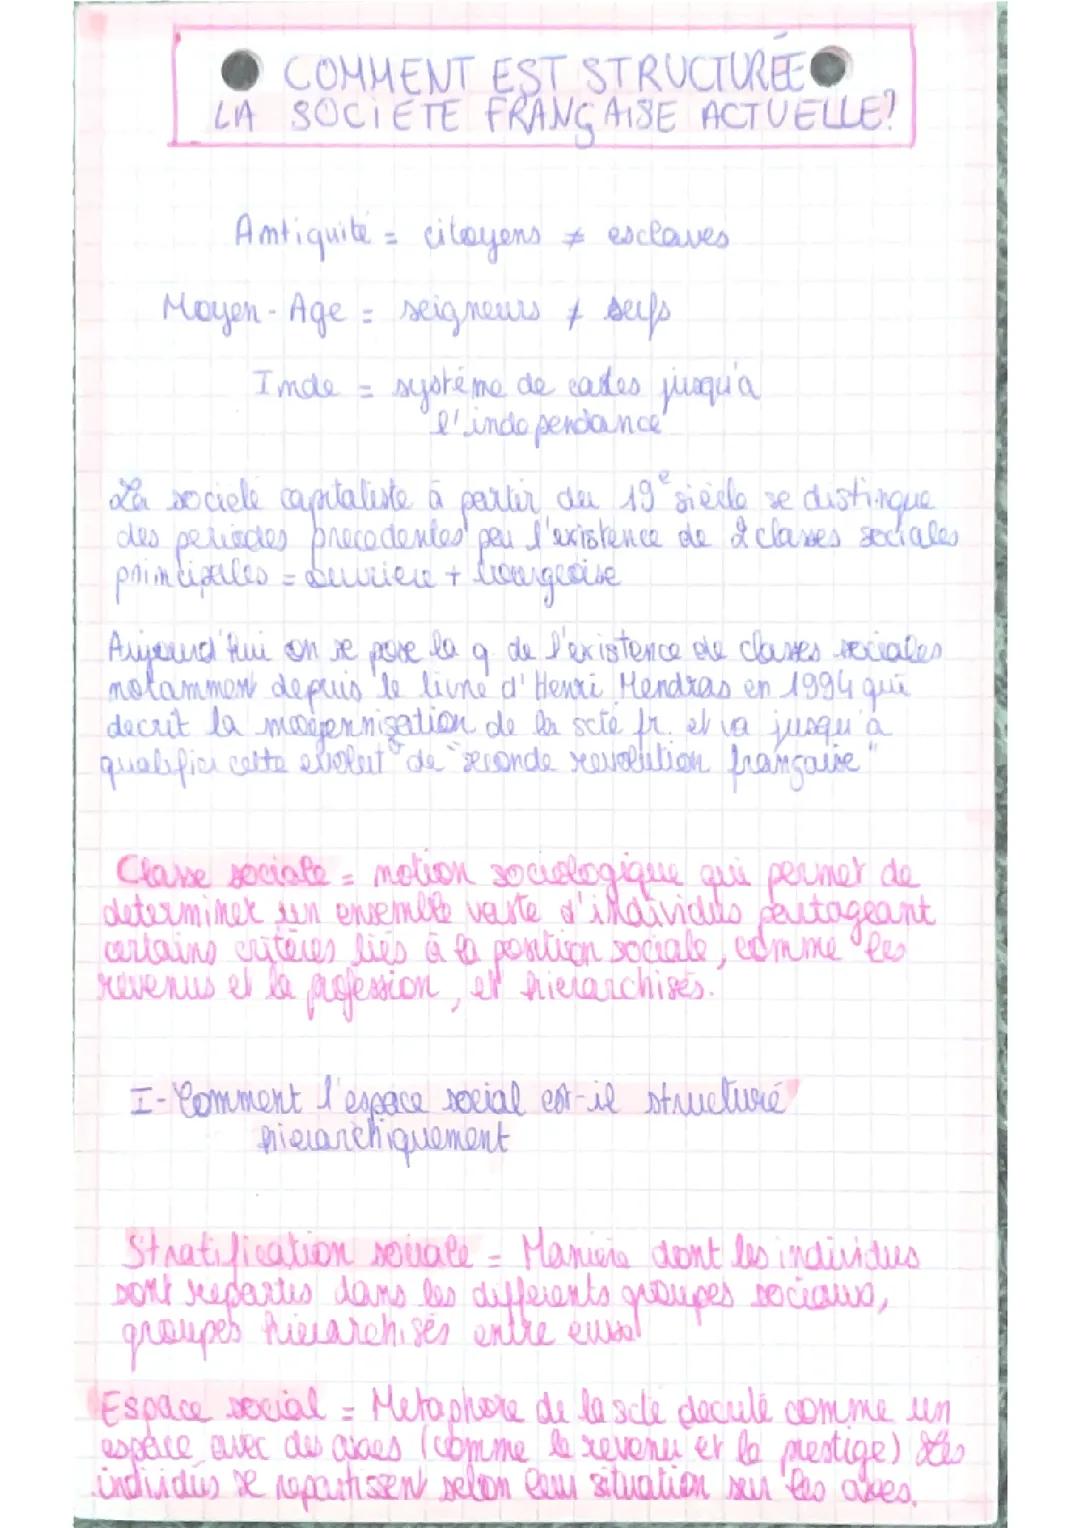 COMMENT EST STRUCTURÉE
LA SOCIETE FRANÇAISE ACTUELLE?
Antiquité = citoyens ≠ esclaves
Moyen-Age = seigneurs ≠ serfs
Inde = système de castes jusqu'à
l'independance
La société capitaliste à partir du 19e siècle se distingue
des periodes precedentes par l'existence de 2 classes sociales
principales = ouvriere + bourgeoise
Aujourd'hui on se pose la q. de l'existence de classes sociales
notamment depuis le livre d'Henri Mendras en 1994 qui
decrit la moyennisation de la scté fr. et va jusqu'à
qualifier cette evolut° de "seconde revolution française"
Classe sociale = notion sociologique qui permet de
determiner un ensemble vaste d'individus partageant
certains critères liés à la position sociale, comme les
revenus et la profession, et hierarchisés.
I- Comment l'espace social est-il structuré
hierarchiquement
Stratification sociale = Maniere dont les individus
sont repartis dans les differents groupes sociaux,
groupes hierarchisés entre eux
Espace social = Metaphore de la scté decrite comme un
espace avec des axes (comme le revenu et le prestige) Les
individus se repartissent selon leur situation sur les axes.